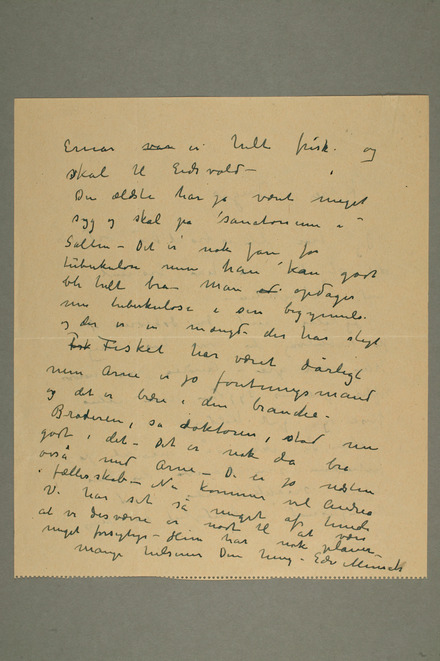 Ermar er helt frisk. og
skal til Eidsvold –
Den ældste har jo været meget
syg og skal på sanatorium i
Salten – Det er nok fare for
tuberkulose men han kan godt
bli helt bra – Man opdager
nu tuberkulose i sin begynnelse
og der er en mængde der har sligt
Fisket har været dårligt
men Arne er jo foretningsmand
og det er bedre i den branche –
Broderen, sa doktoren, stod nu
godt i det – Det er nok da bra
også med Arne – De er jo næsten
i fællesskab – Nu kommer vel Andrea
Vi har set så meget af
at vi desværre er nødt til at være
meget forsigtige – Hun har nok planer –
mange hilsener Din heng. Edv Munch